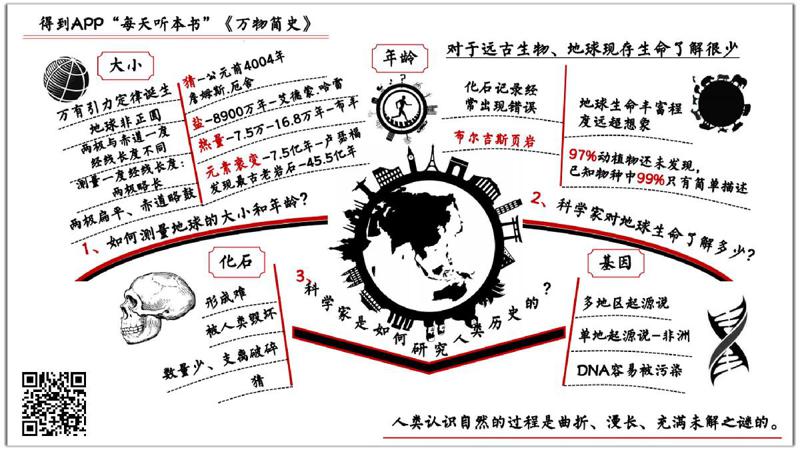 得到APP“每天听本书”《万物简史》
大小
万有引力定律诞生
地球非正圆
两极与赤道一度
经线长度不同
测量一度经线长度:
两极略长
两极扁平、赤道略鼓
猜-公元前4004年
詹姆斯.厄舍
盐-8900万年-艾德蒙·哈雷
热量-7.5万-16.8万年-布丰
元素衰变-7.5亿年-卢瑟福
发现最古老岩石-45.5亿年
年龄
1、如何测量地球的大小和年龄?
对于远古生物、地球现存生命了解很少
化石记录经
常出现错误
布尔吉斯页岩
地球生命丰富程
度远超想象
97%动植物还未发现,
已知物种中99%只有简单描述
2、科学家对地球生命了解多少?
化石
形成难
被人类毁坏
数量少、支离破碎
猜
3、科学家是如何研究人类历史的?
基因
多地区起源说
单地起源说-非洲
DNA容易被污染
人类认识自然的过程是曲折、漫长、充满未解之谜的。